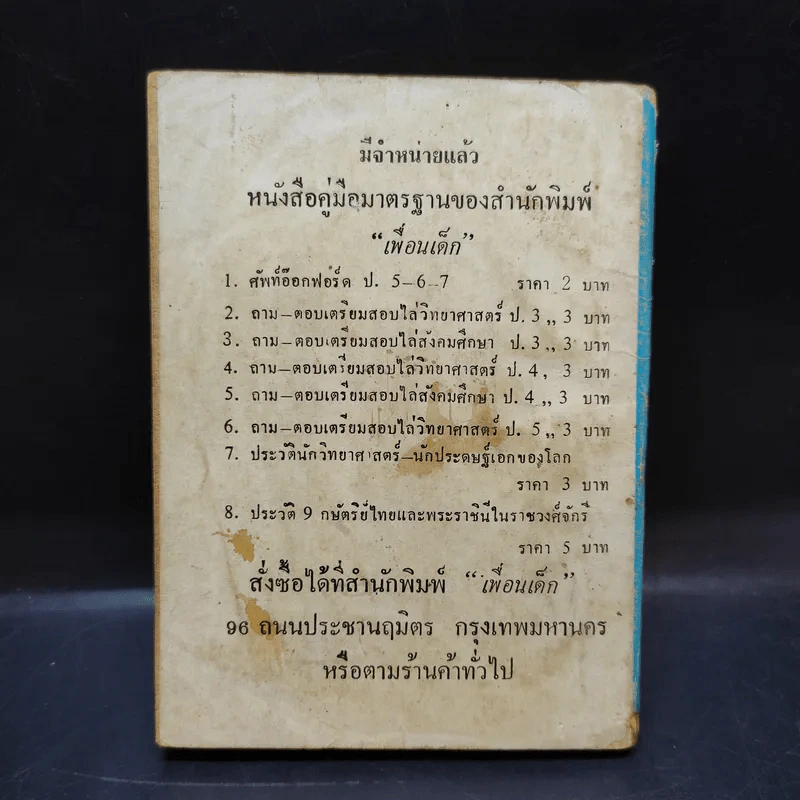 มีจำหน่ายแล้ว
หนังสือคู่มือมาตรฐานของสำนักพิมพ์
“เพื่อนเด็ก”
1. ศัพท์อ๊อกฟอร์ด ป. 5–6–7 ราคา 2 บาท
2. ถาม–ตอบเตรียมสอบไล่วิทยาศาสตร์ ป. 3 ,, 3 บาท
3. ถาม–ตอบเตรียมสอบไล่สังคมศึกษา ป. 3 ,, 3 บาท
4. ถาม–ตอบเตรียมสอบไล่วิทยาศาสตร์ ป. 4 , 3 บาท
5. ถาม–ตอบเตรียมสอบไล่สังคมศึกษา ป. 4 ,, 3 บาท
6. ถาม–ตอบเตรียมสอบไล่วิทยาศาสตร์ ป. 5 ,, 3 บาท
7. ประวัตินักวิทยาศาสตร์–นักประดษฐ์เอกของโลก
ราคา 3 บาท
8. ประวัติ 9 กษัตริย์ไทยและพระราชินีในราชวงศ์จักรี
ราคา 5 บาท
สั่งซื้อได้ที่สำนักพิมพ์ “เพื่อนเด็ก”
96 ถนนประชานฤมิตร กรุงเทพมหานคร
หรือตามร้านค้าทั่วไป